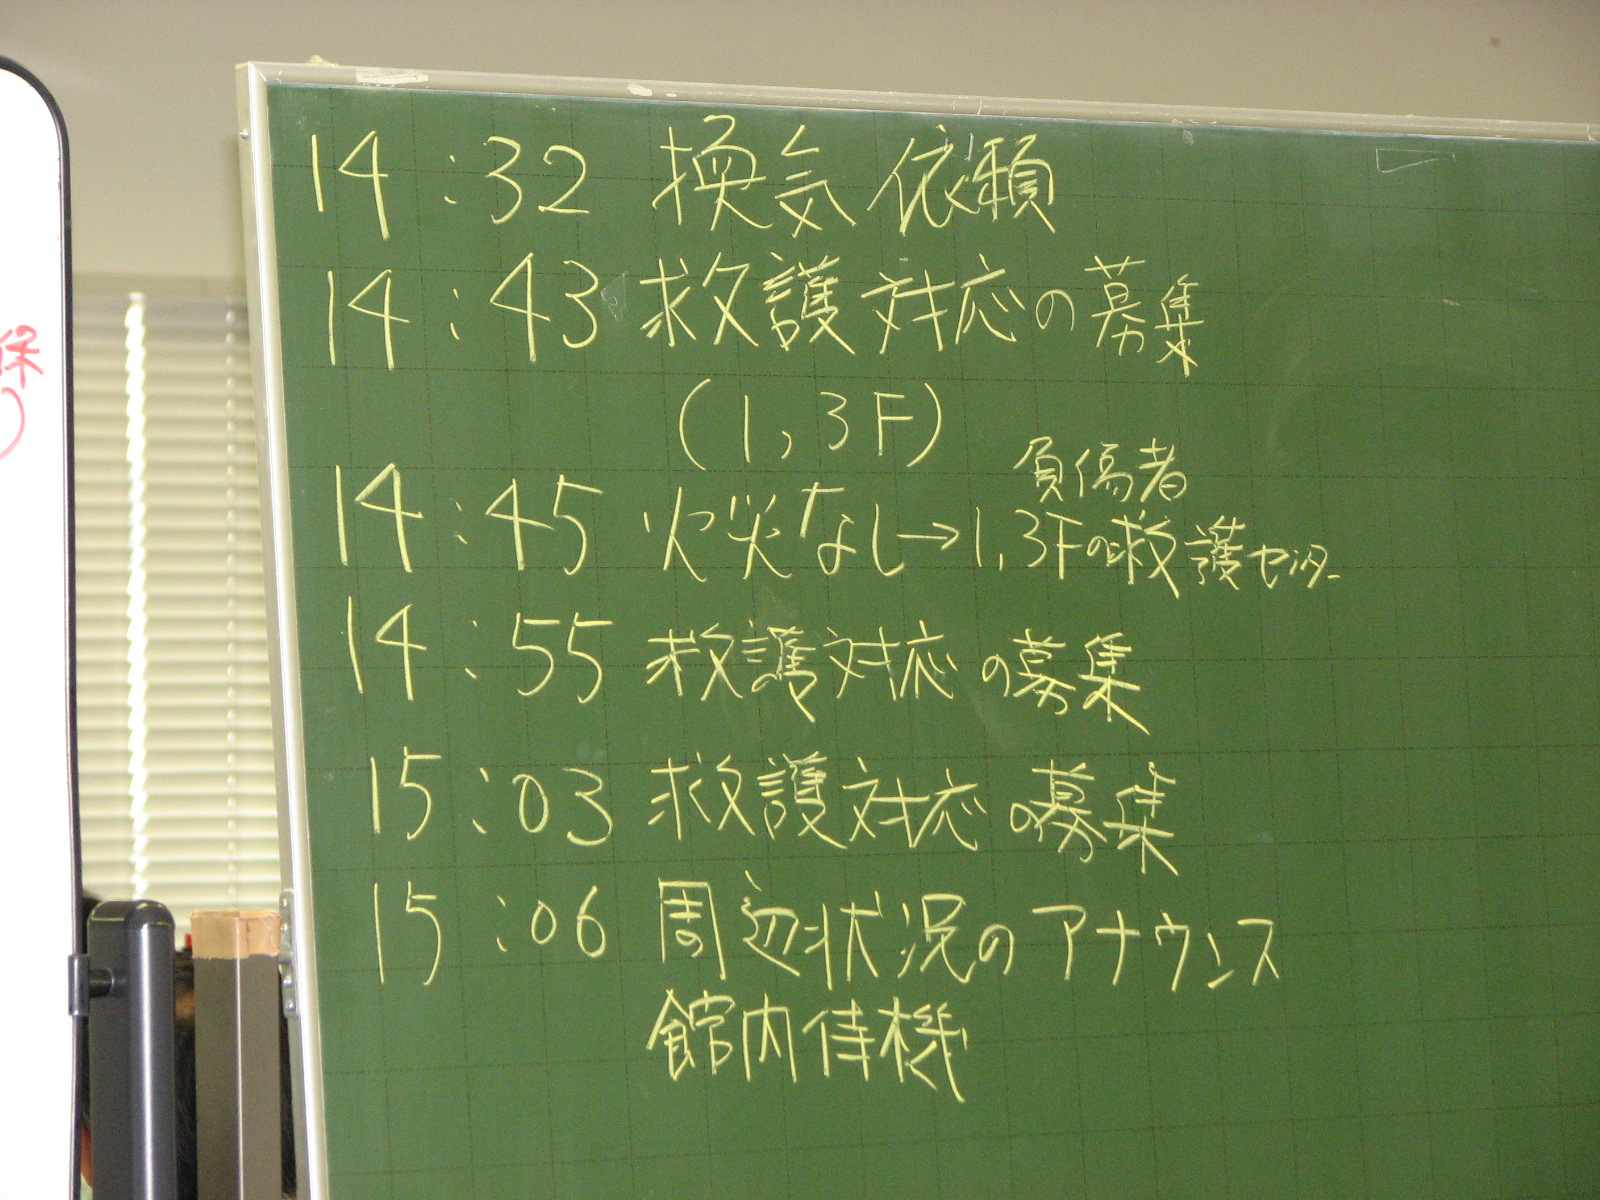 14:32 換気依頼
14:43 救護対応の募集
(1,3F)
負傷者
14:45 火災なし→1,3Fの救護センター
14:55 救護対応の募集
15:03 救護対応の募集
15:06 周辺状況のアナウンス
館内待機
保
)